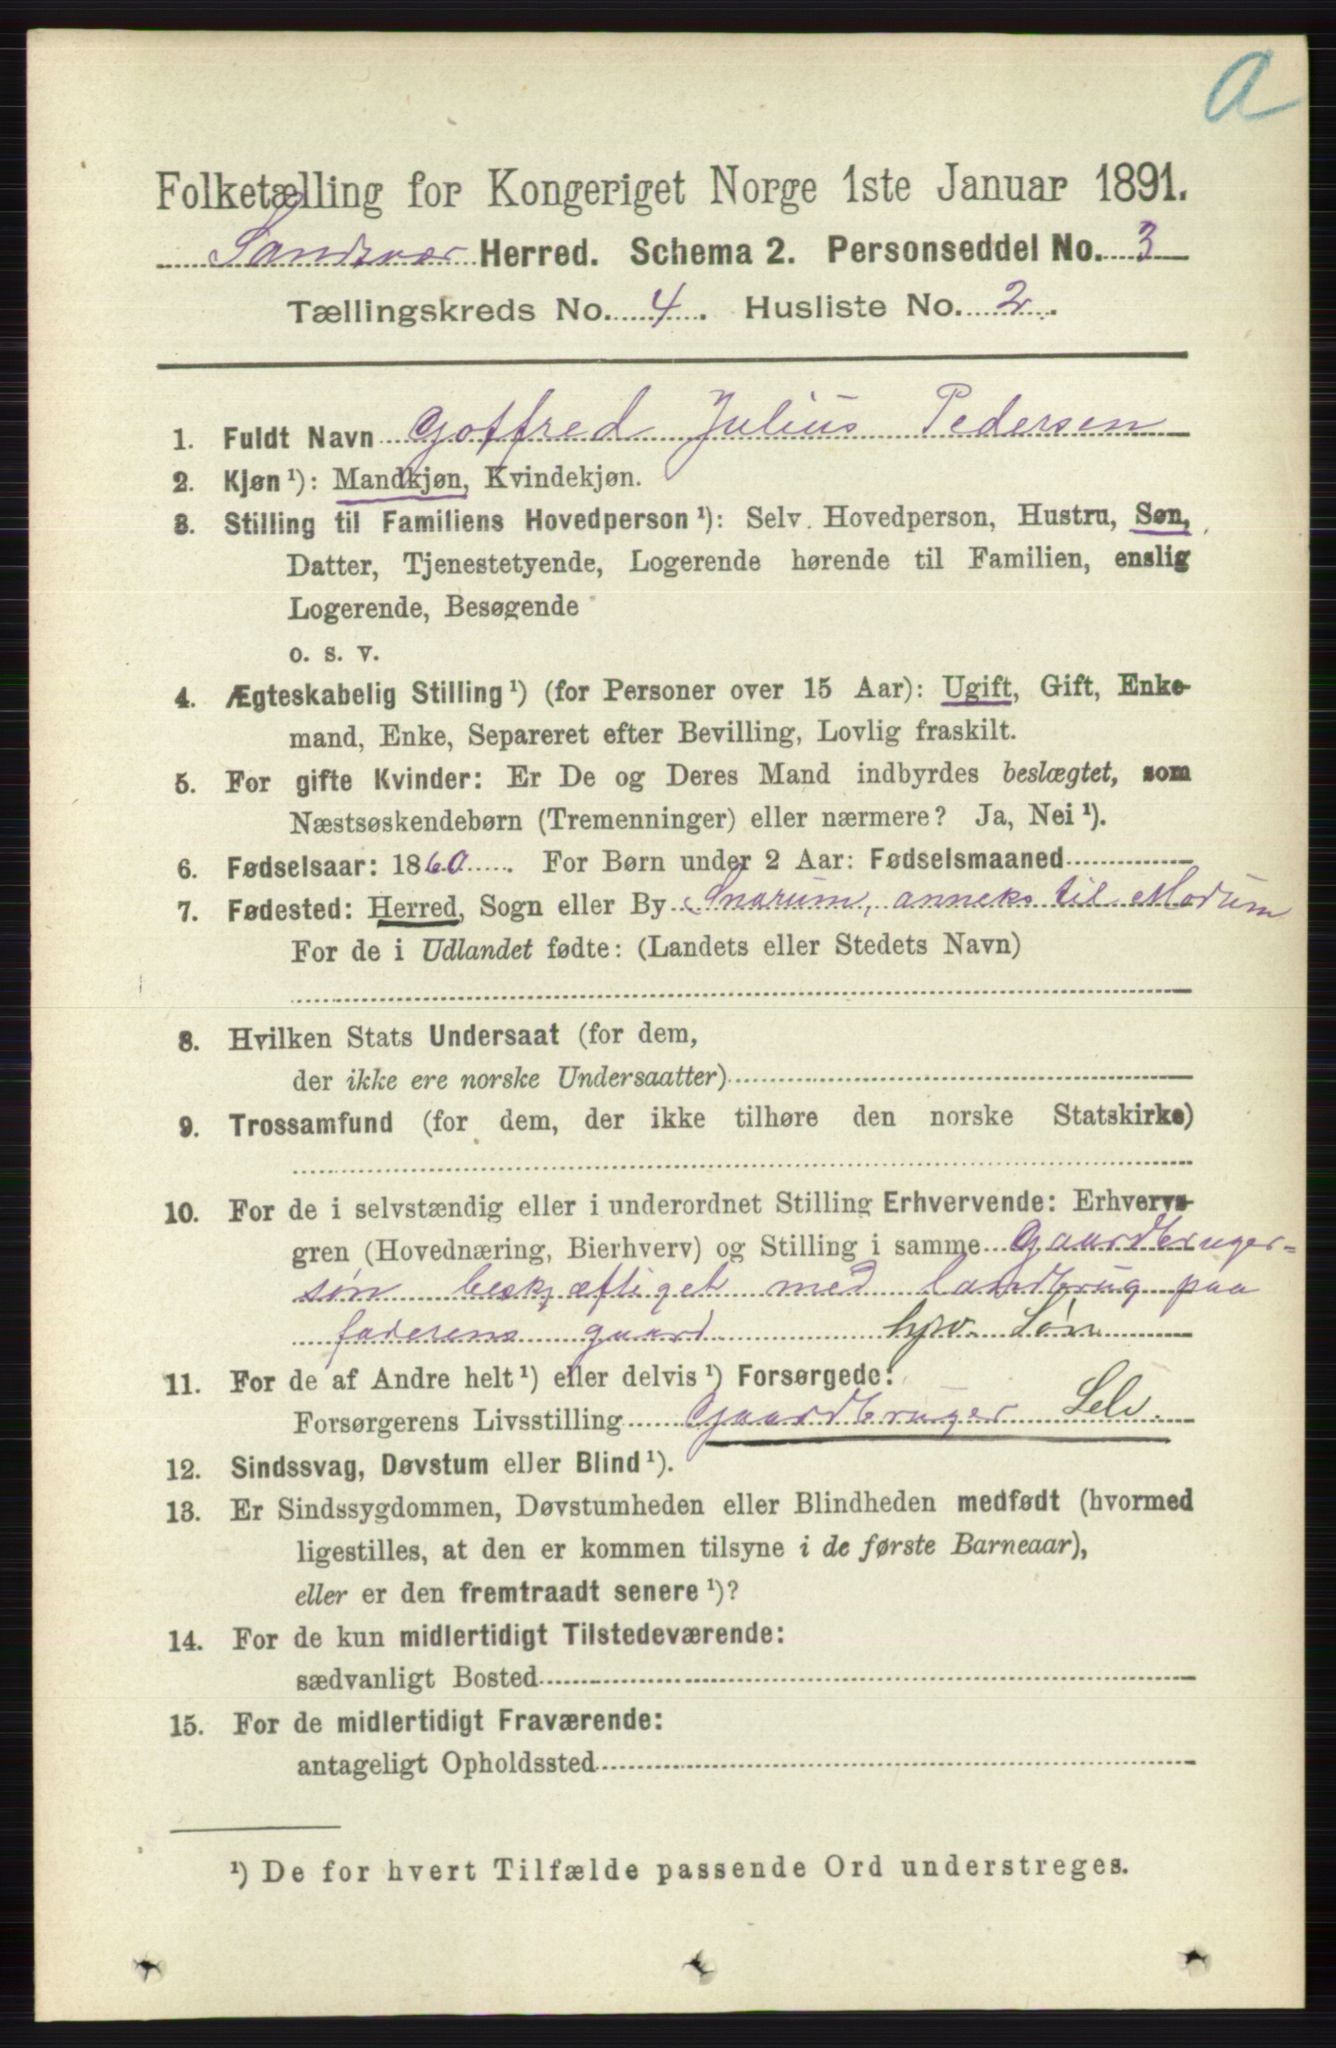 a
Folketælling for Kongeriget Norge 1ste Januar 1891.
Sandsvær Herred. Schema 2. Personseddel No. 3
Tællingskreds No. 4. Husliste No. 2.
1. Fuldt Navn Gotfred Julius Pedersen
2. Kjøn ¹): Mandkjøn, Kvindekjøn.
3. Stilling til Familiens Hovedperson ¹): Selv Hovedperson, Hustru, Søn,
Datter, Tjenestetyende, Logerende hørende til Familien, enslig
Logerende, Besøgende
o. s. v.
4. Ægteskabelig Stilling ¹) (for Personer over 15 Aar): Ugift, Gift, Enke-
mand, Enke, Separeret efter Bevilling, Lovlig fraskilt.
5. For gifte Kvinder: Er De og Deres Mand indbyrdes beslægtet, som
Næstsøskendebørn (Tremenninger) eller nærmere? Ja, Nei ¹).
6. Fødselsaar: 1860. For Børn under 2 Aar: Fødselsmaaned
7. Fødested: Herred, Sogn eller By Snarum, anneks til Modum
For de i Udlandet fødte: (Landets eller Stedets Navn)
8. Hvilken Stats Undersaat (for dem,
der ikke ere norske Undersaatter)
9. Trossamfund (for dem, der ikke tilhøre den norske Statskirke)
10. For de i selvstændig eller i underordnet Stilling Erhvervende: Erhvervs-
gren (Hovednæring, Bierhverv) og Stilling i samme Gaardbruger-
søn beskjæftiget med landbrug paa
faderens gaard hjv. Søn
11. For de af Andre helt ¹) eller delvis ¹) Forsørgede:
Forsørgerens Livsstilling Gaardbruger Selv.
12. Sindssvag, Døvstum eller Blind ¹).
13. Er Sindssygdommen, Døvstumheden eller Blindheden medfødt (hvormed
ligestilles, at den er kommen tilsyne i de første Barneaar),
eller er den fremtraadt senere ¹)?
14. For de kun midlertidigt Tilstedeværende:
sædvanligt Bosted
15. For de midlertidigt Fraværende:
antageligt Opholdssted
¹) De for hvert Tilfælde passende Ord understreges.